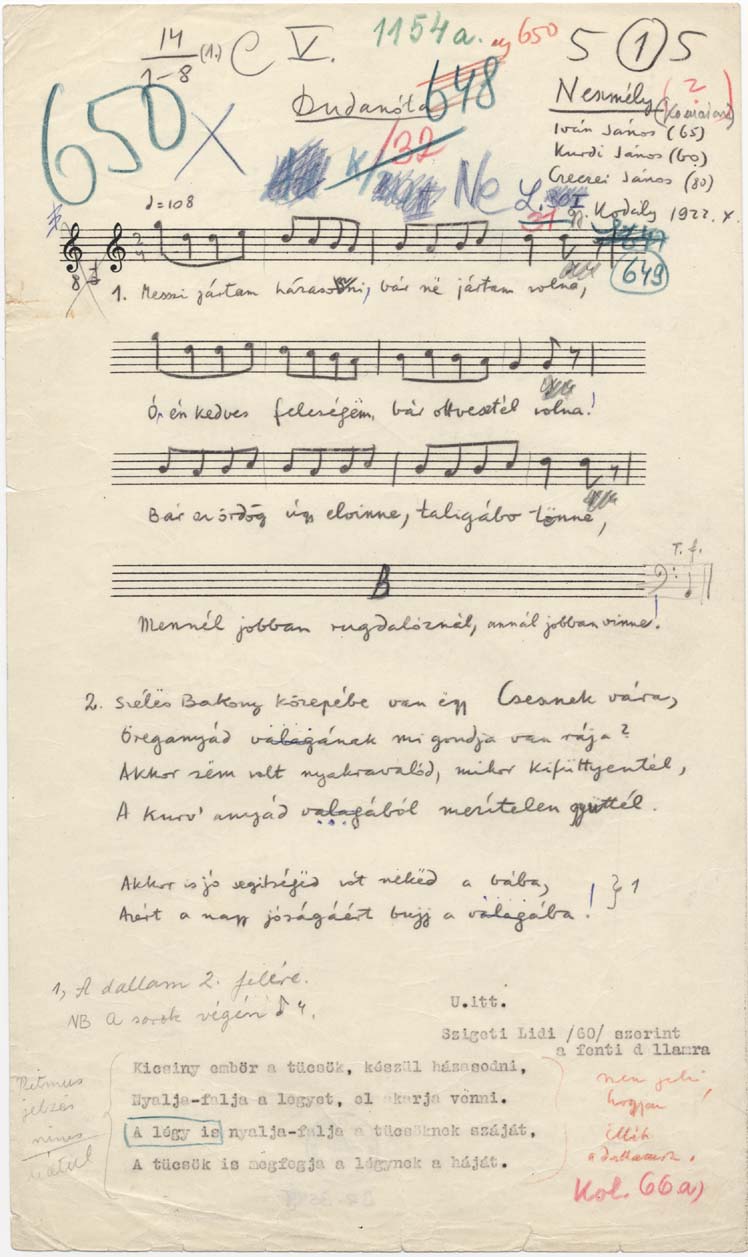 14
1-8 (1.) C V. 1154a. 650 5 1 5
650 X Dudanóta 648 Neszmély (?
(Komárom)
Iván János (65)
132 Kurdi János (60)
Czeczei János (80)
Ne L. 30I
31 Kodály 1922. X.
♩=108
2
4
649
8
1. Messzi jártam házasodni, bár në jártam volna,
Ó, én kedves feleségëm, bár ottvesztél volna!
Bár az ördög úgy elvinne, taligábo tönne,
B T. f.
Mennél jobban rugdalóznál, annál jobban vinne!
2. Szélës Bakony közepébe van ëgy Csesznek vára,
Öreganyád valagának mi gondja van rája?
Akkor sëm volt nyakravalód, mikor kifüttyentél,
A kurv' anyád valagából mezítelen gyüttél.
Akkor is jó segitségëd vót nékëd a bába,
Azért a nagy jóságáért bujj a valagába! } 1
1, A dallam 2. felére.
NB A sorok végén
U.itt.
Szigeti Lidi /60/ szerint
a fenti d llamra
Kicsiny embör a tücsök, készül házasodni,
Nyalja-falja a légyet, el akarja vënni.
A légy is nyalja-falja a tücsöknek száját,
A tücsök is mëgfogja a légynek a háját.
Ritmus
jelzés
nincs
nátul
nem jelzi,
hogyan
illik
a dallamra.
Kol. 66a)